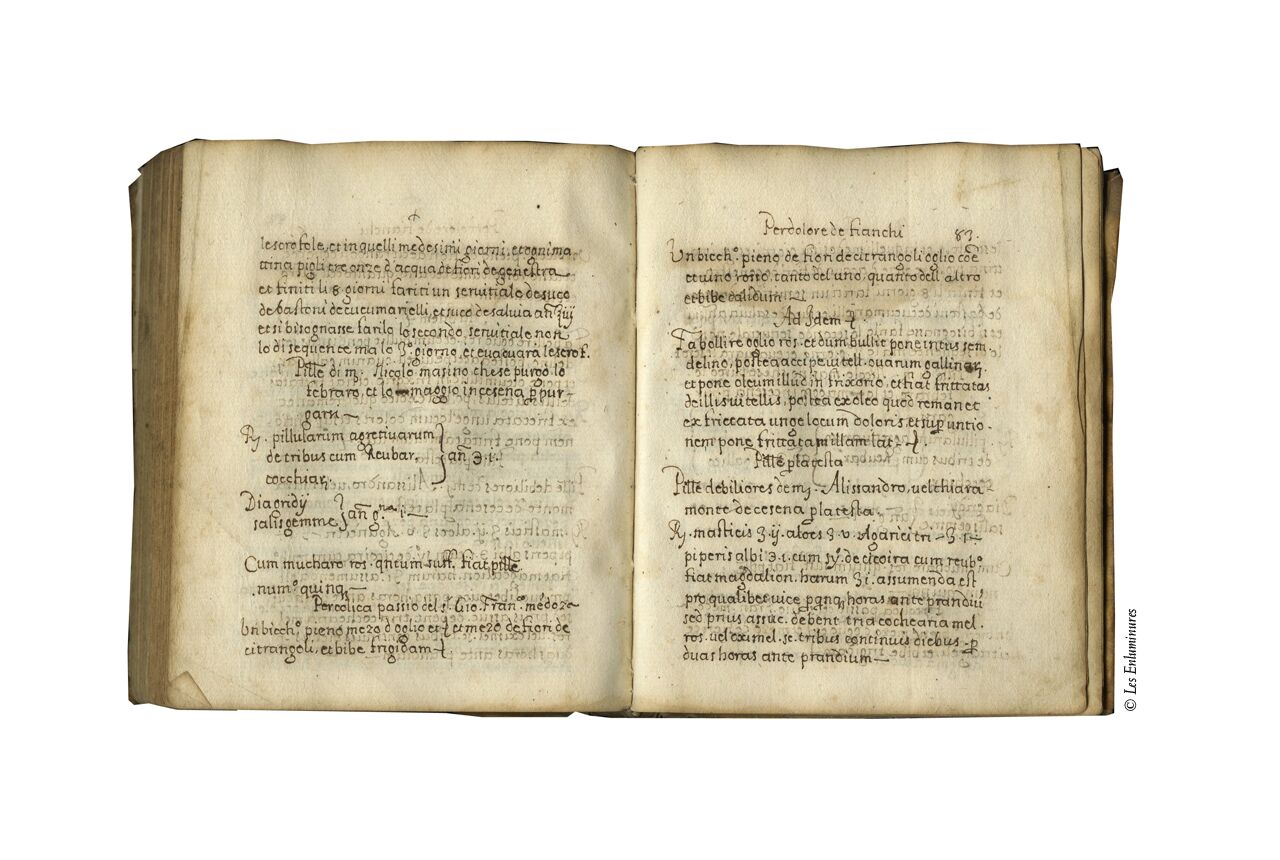 le scrofole, et in quelli medesimi giorni, et ogni ma
ttina pigli tre onze d'acqua de fiori de genestra
et finiti li 8 giorni fariti un servitiale de suco
de bastoni de cucumarielli, et suco de salvia añ ʒiij
et si bisognasse farilo lo secondo servitiale non
lo di sequente ma lo 3º. giorno, et evacuara le scrof.
Pille di m. Nicolo masino che se purgo lo
febraro, et lo maggio in cesena p pur-
gare
R. pillularum agretivarum
de tribus cum Reubar. añ ℈.i.
cocchiar.
Diagridij
salis gemme añ gna i
Cum mucharo ros. qntum suff. fiat pille
numº quinq
Per colica passio del s. Gio. Franº.
Un bicchº. pieno mezo d'oglio et et mezo de fiori de
citrangoli, et bibe frigidam
Per dolore de fianchi 83.
Un bicchº. pieno de fiori de citrangoli oglio cõe
et vino rosso tanto del uno, quanto dell'altro
et bibe calidum
Ad Idem
Fa bollire oglio ros. et dum bullit pone intus sem.
de lino, postea accipe vitell. ovarum gallinar.
et pone oleum illud in frixorio, et fiat frittatas
dellis vitellis, postea ex oleo quod remanet
ex friccata unge locum doloris, et sup untio-
nem pone frittatam illam
Pille p la testa
Pille debiliores de m. Alissandro, vel chiara
monte de cesena p la testa.
R. masticis ʒ.ij. aloes ʒ.v. Agarici tri ʒ.i
piperis albi ℈.i. cum sy. de cicoira cum reubº
fiat magdalion. harum ʒi. assumenda est
pro qualibet vice horas ante prandiũ
sed prius assuc. debent tria cochearia mel.
ros. vel oximel. se. tribus continuis diebus p
duas horas ante prandium
© Les Enluminures